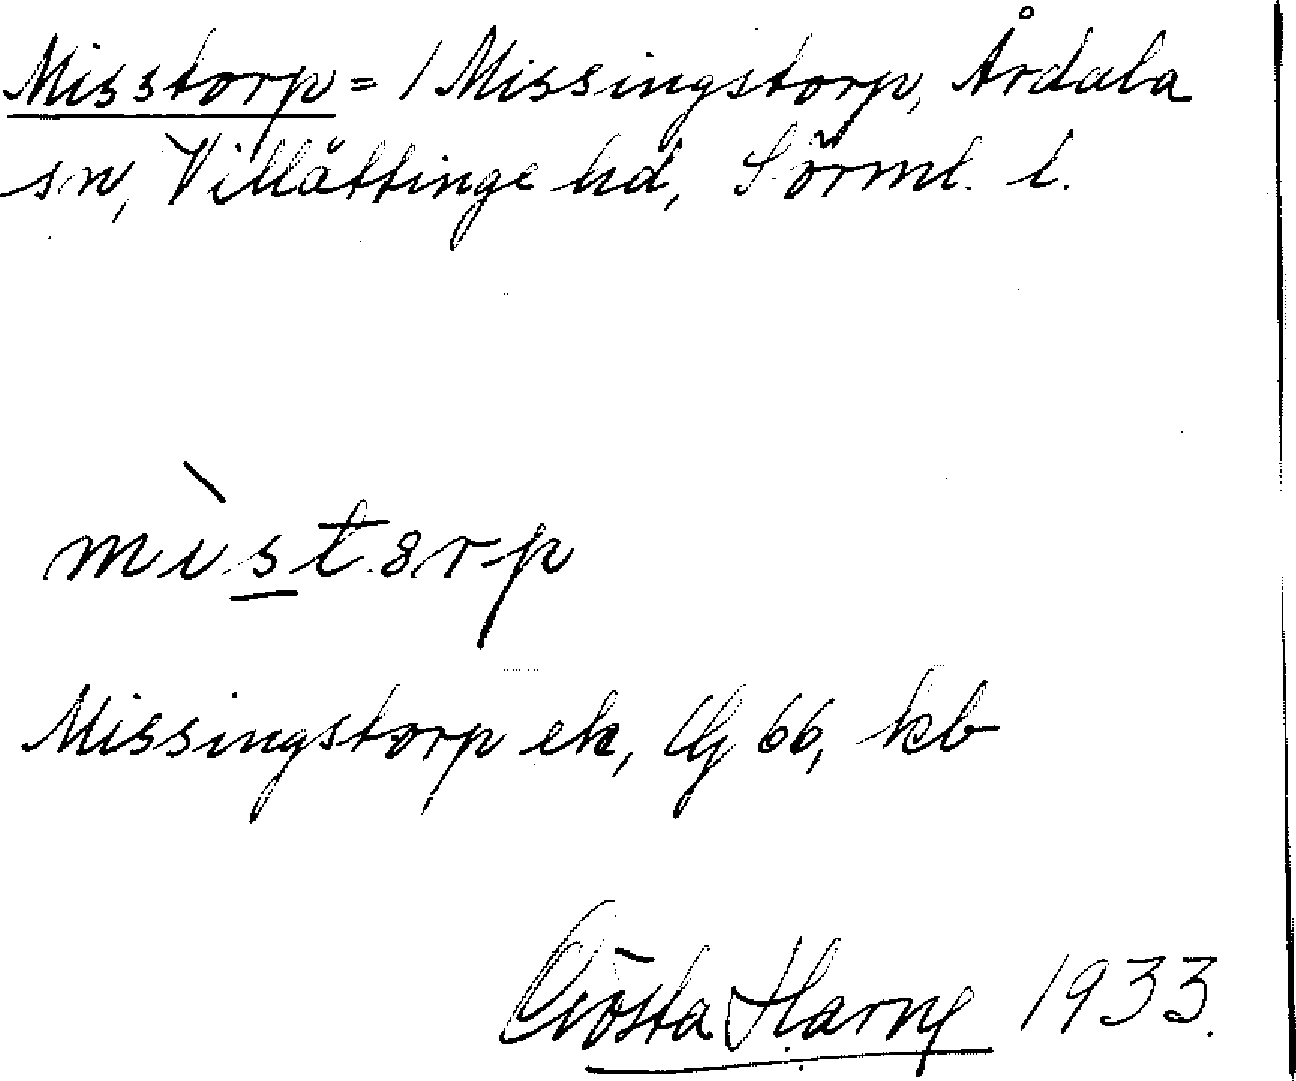 Misstorp = / Missingstorp, Årdala
sn, Villåttinge hd, Sörml. l.
mìstorp
Missingstorp ek, Cg 66, kb
Gösta Harng 1933.